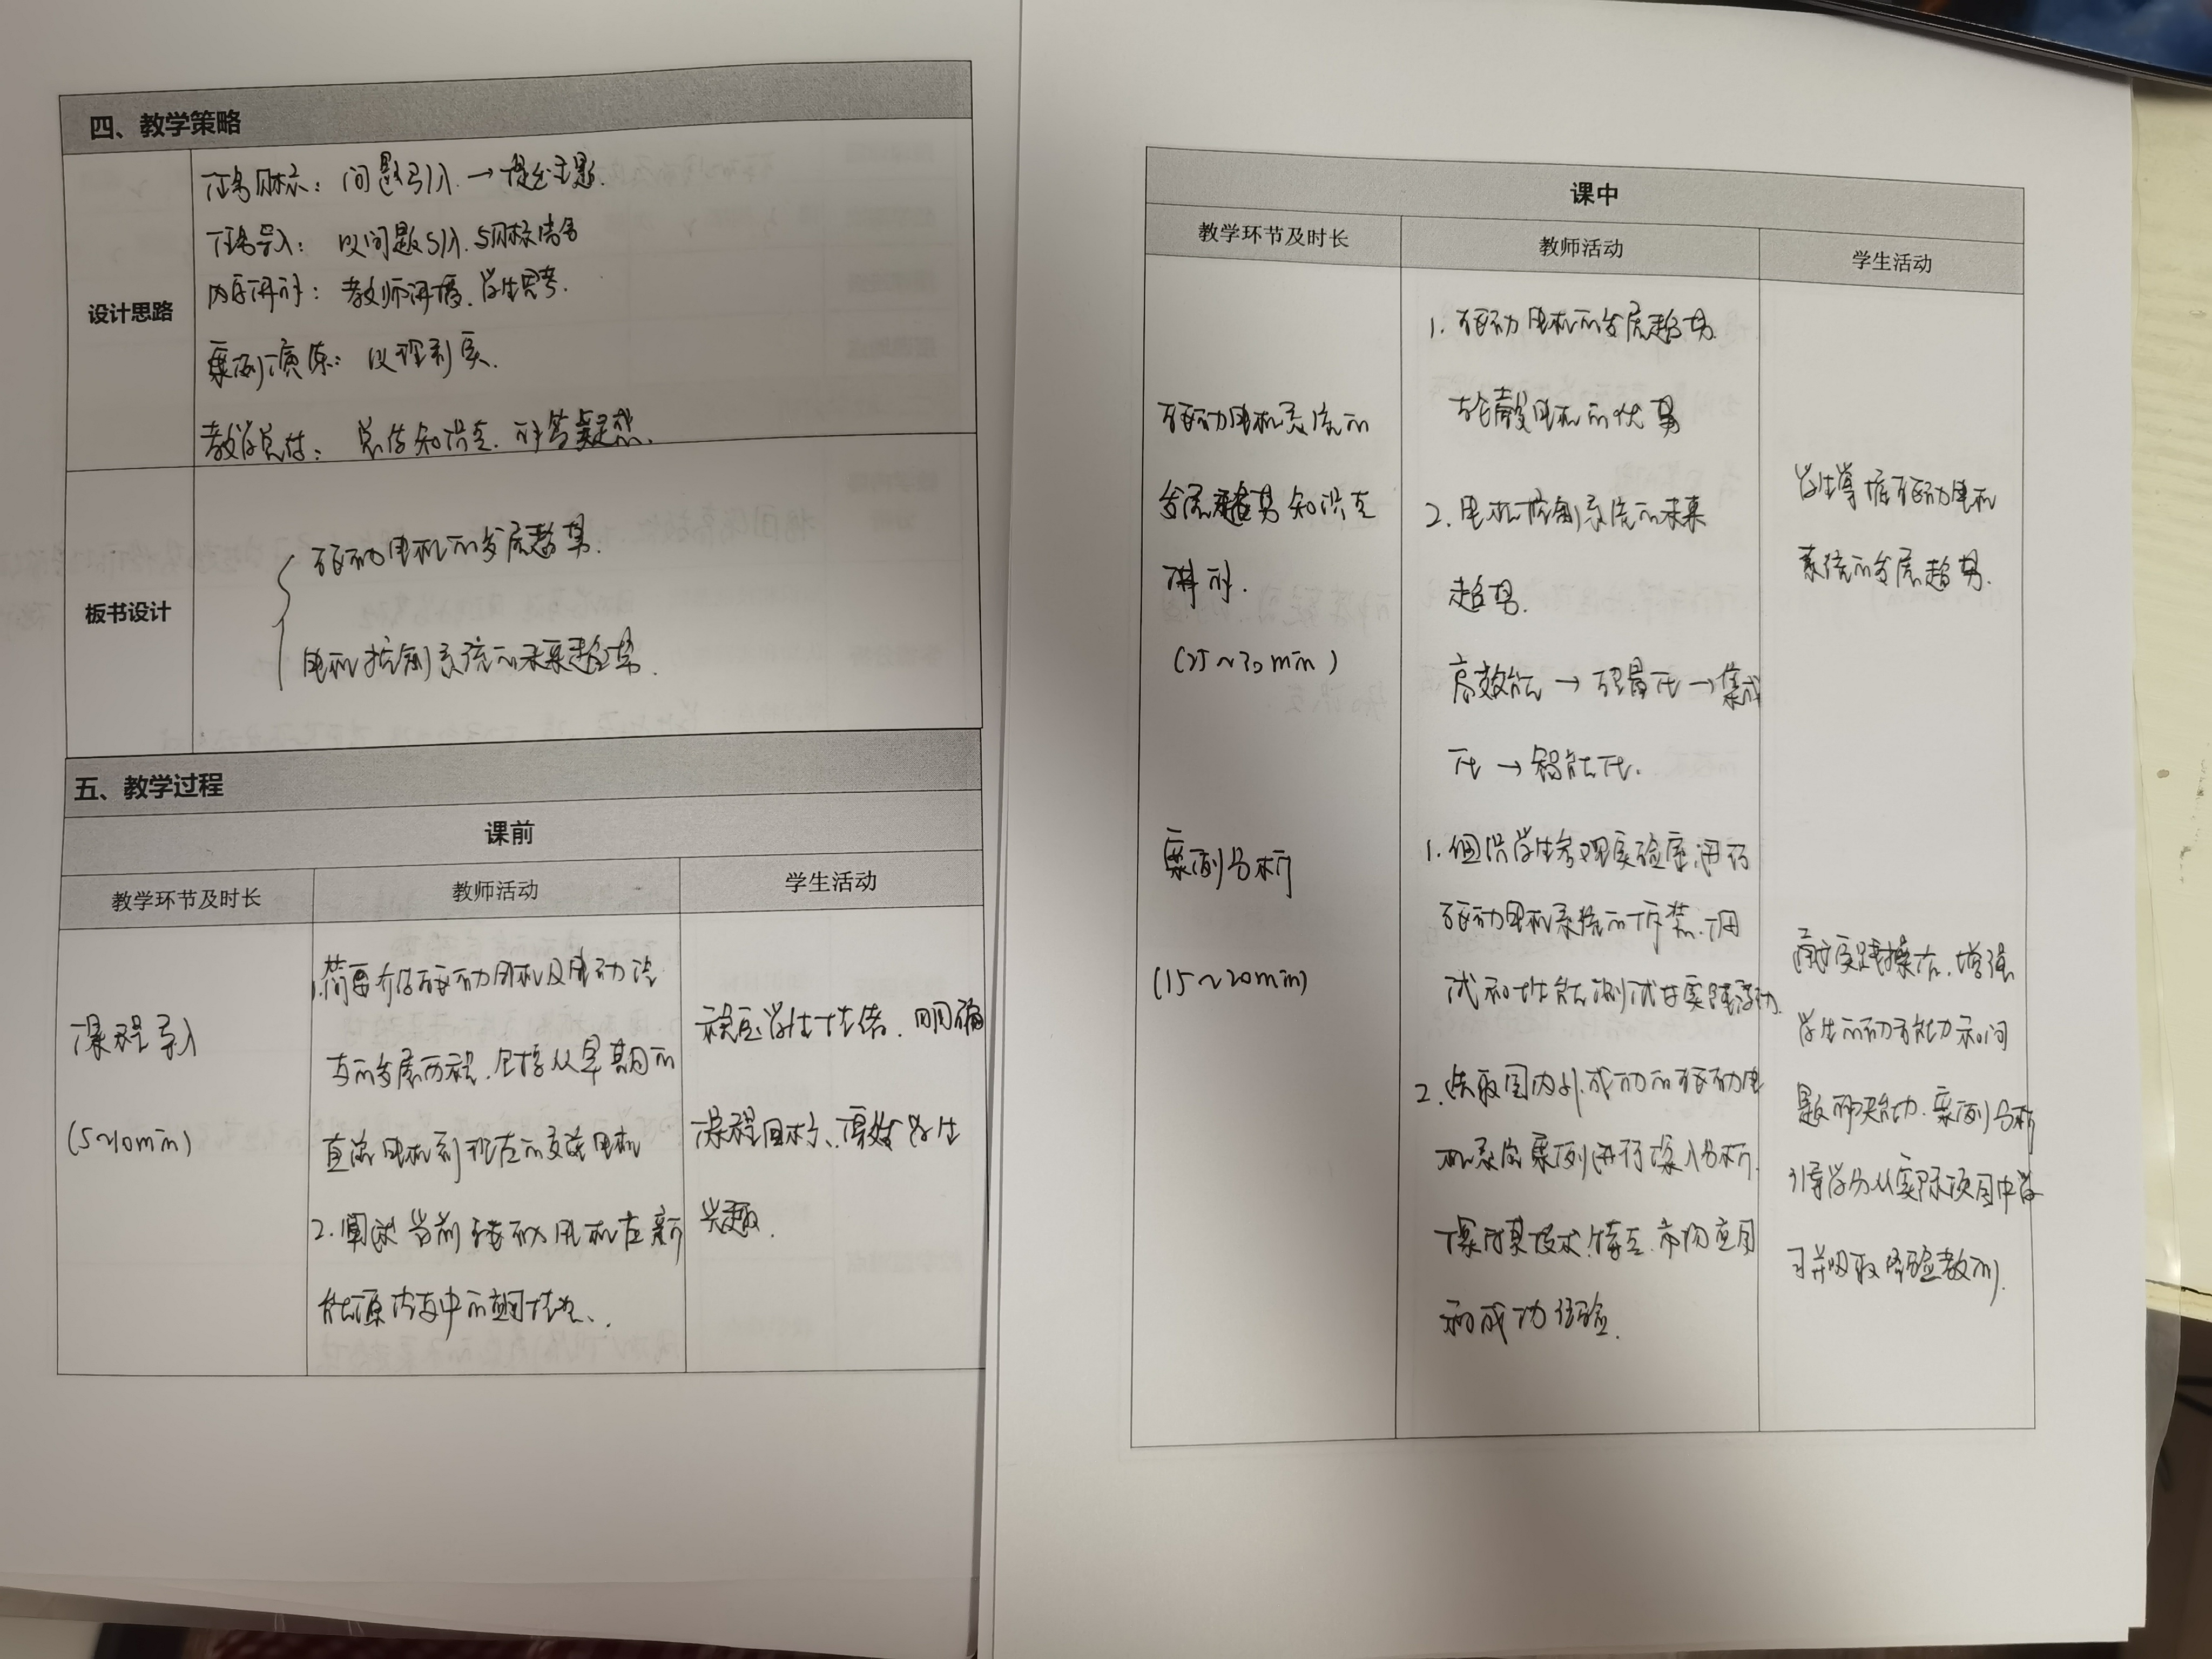 四、教学策略
设计思路
任务目标：问题引入→提出主题.
任务导入：以问题引入.与目标结合
内容讲解：教师讲授.学生思考.
案例演练：以理到实.
教学总结：总结知识点.解答疑惑.
板书设计
驱动电机的发展趋势.
电机控制系统的未来趋势.
五、教学过程
课前
教学环节及时长
教师活动
学生活动
课程导入
(5~10min)
1.简要介绍驱动电机及电动汽
车的发展历程.包括从早期的
直流电机到现在的交流电机
2.阐述当前驱动电机在新
能源汽车中的应用情况.
稳定学生情绪.明确
课程目标、激发学生
兴趣.
课中
教学环节及时长
教师活动
学生活动
驱动电机系统的
发展趋势知识点
讲解.
(25~30min)
1.驱动电机的发展趋势.
轮毂电机的优势
2.电机控制系统的未来
趋势.
高效能→轻量化→集成
化→智能化.
学生掌握驱动电机
系统的发展趋势.
案例分析
(15~20min)
1.组织学生参观实验室.进行
驱动电机系统的拆装.调
试和性能测试等实践活动.
2.选取国内外成功的驱动电
机系统案例进行深入分析.
探讨其技术特点.市场应用
和成功经验.
通过实践操作.增强
学生的动手能力和问
题解决能力.案例分析
引导学生从实际项目中学
习并吸取经验教训.